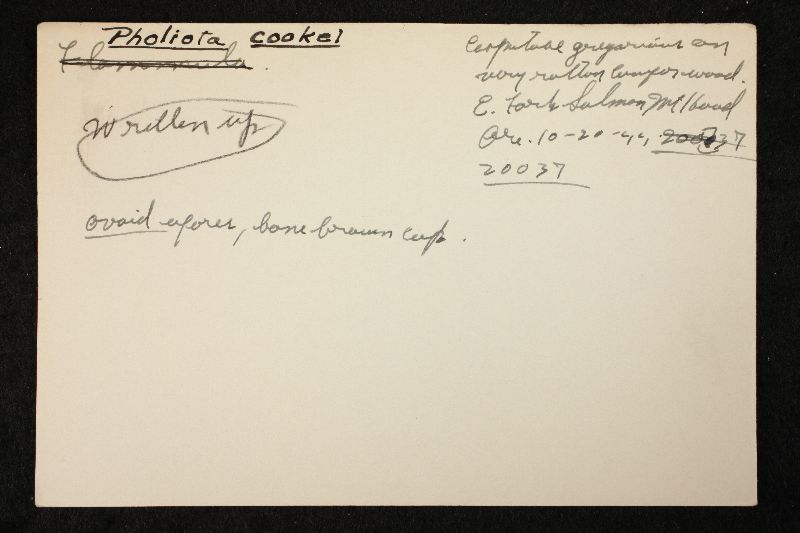 Pholiota cookei
Flammula.
Written up
Cespitose gregarious on
very rotten conifer wood.
E. Fork Salmon Mt Hood
Ore. 10-20-44 20037
20037
ovoid spores, bone brown cap.